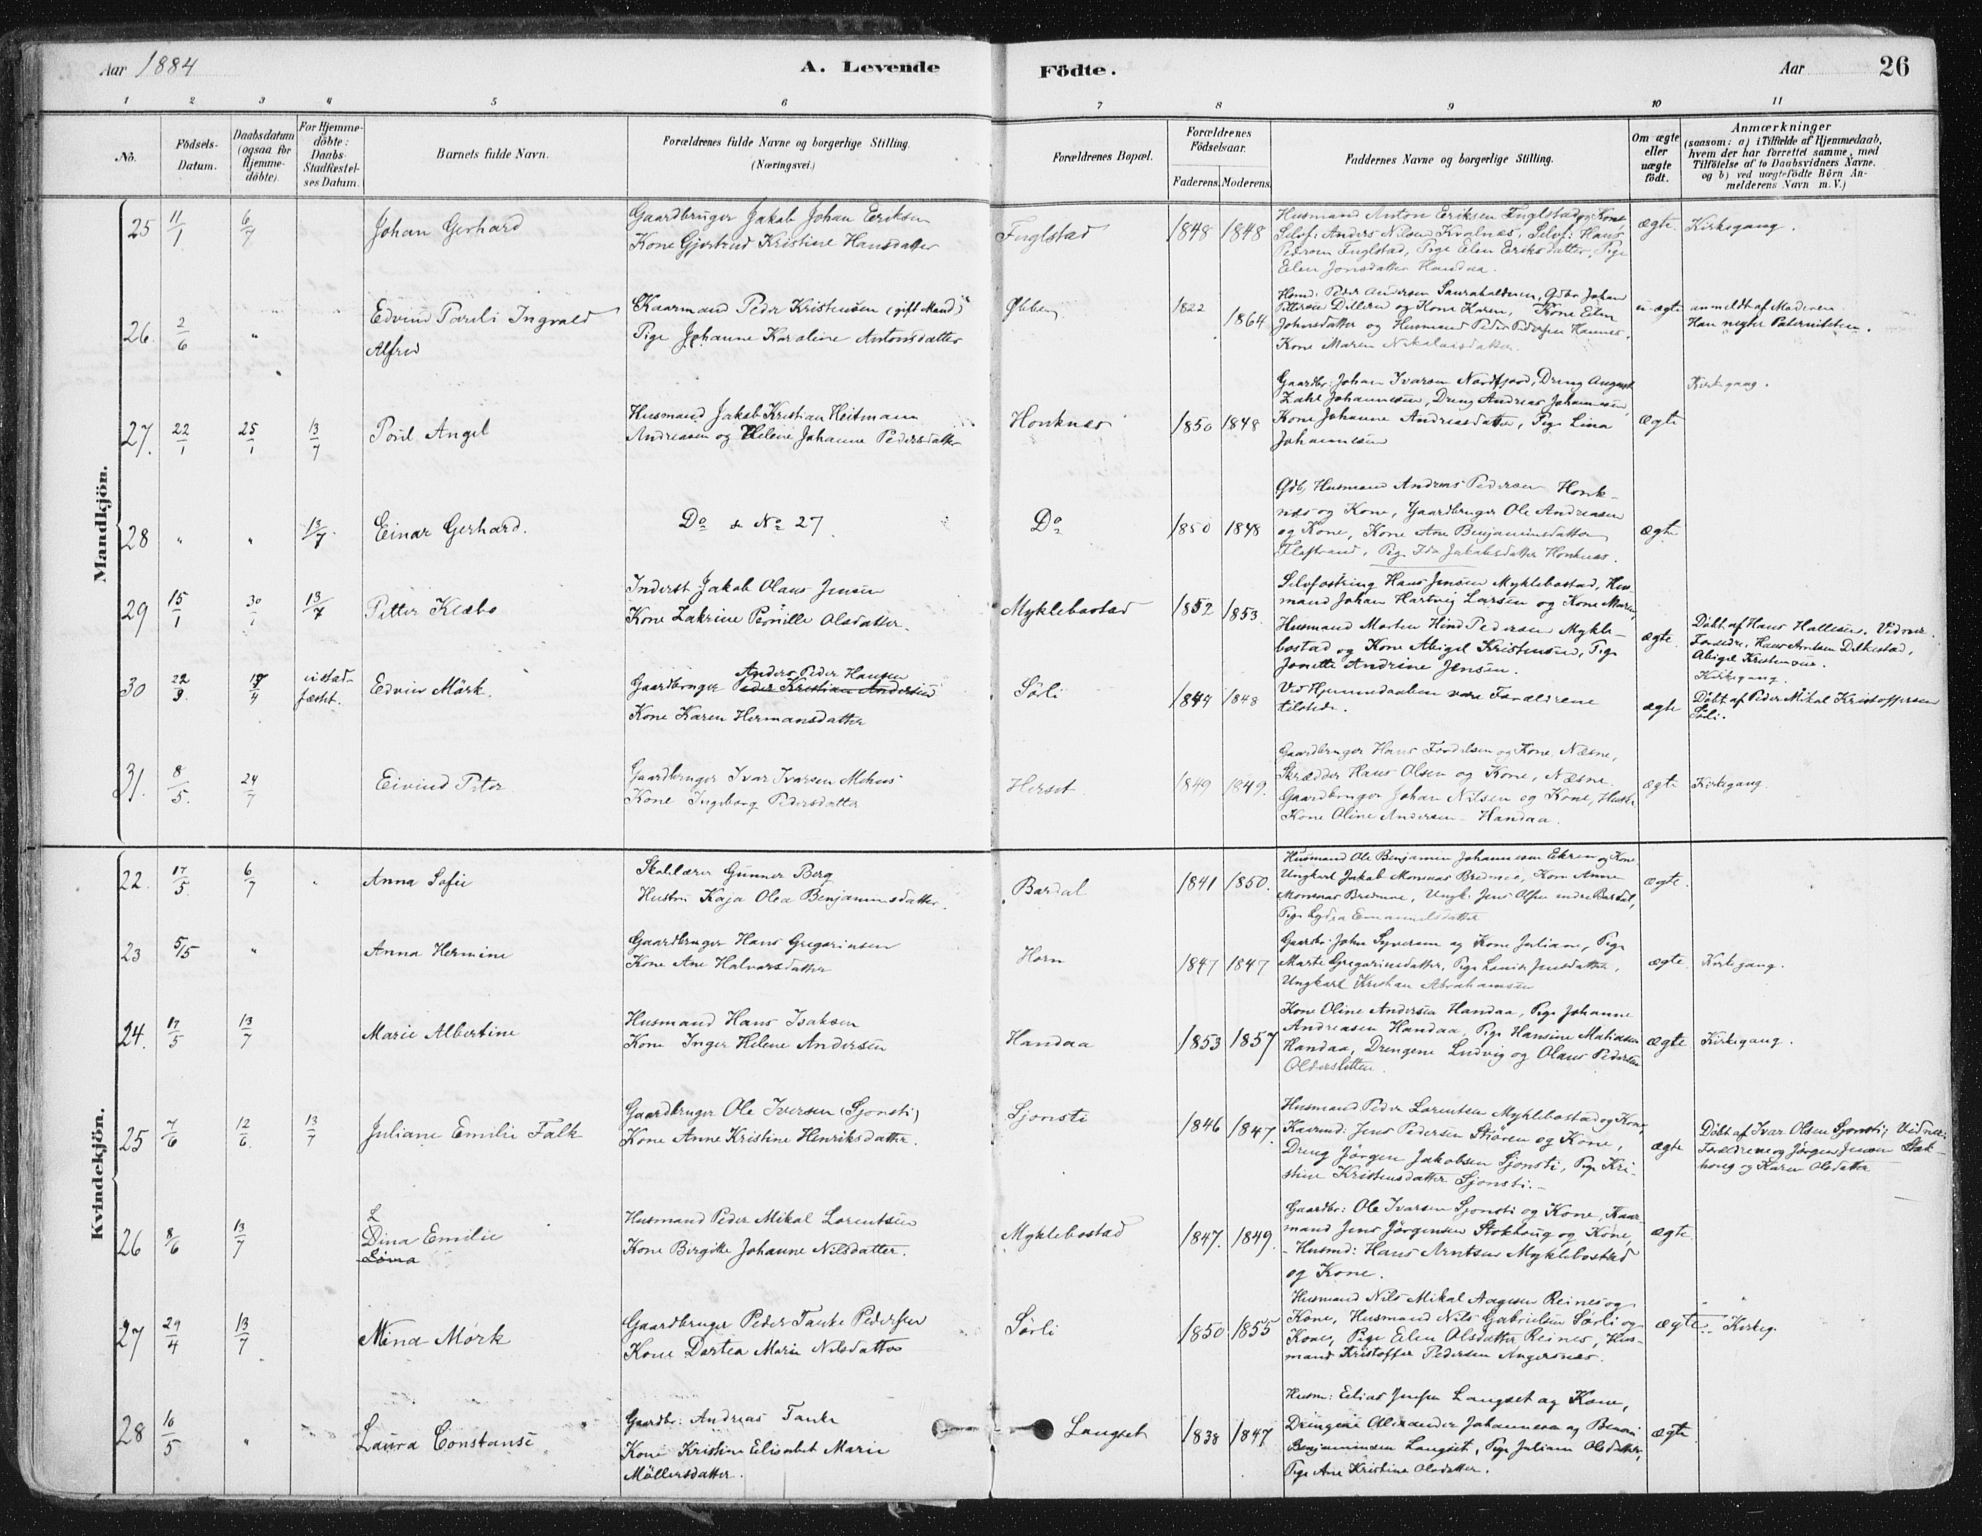 Aar 1884 A. Levende Födte. Aar 26
1 2 3 4 5 6 7 8 9 10 11
No.
Födsels-Datum.
Daabsdatum (ogsaa for Hjemme-döbte).
For Hjemme-döbte: Daabs-Stadfæstel-ses Datum.
Barnets fulde Navn.
Forældrenes fulde Navne og borgerlige Stilling. (Næringsvei.)
Forældrenes Bopæl.
Forældrenes Födselsaar.
Faderens. Moderens.
Faddernes Navne og borgerlige Stilling.
Om ægte eller uægte födt.
Anmærkninger
(saasom: a) i Tilfælde af Hjemmedaab, hvem der har forrettet samme, med Tilföielse af to Daabsvidners Navne. og b) ved uægtefödte Börn An-melderens Navn m. V.)
Mandkjön.
25 11/1 6/7 Johan Gerhard
Gaardbruger Jakob Johan Eriksen
Kone Gjertrud Kristine Hansdatter
Fuglstad 1848 1848
Husmand Anton Eriksen Fuglstad og Kone
Selvf: Anders Nilsen Kvalnes, Selvf: Hans
Pedersen Fuglstad, Pige Elen Eriksdatter, Pige
Elen Jonsdatter Handaa.
ægte. Kirkegang.
26. 2/6 " Edvind Ingvald
Alfred
Kaarmand Peder Kristensen (gift Mand)
Pige Johanne Karoline Antonsdatter
1822 1864
Husmd: Peder Andersen Johan
og Kone Karen, Kone Elen
Johnsdatter og Husmand Peder Pedersen
Kone Maren Nikolaisdatter.
uægte anmeldt af Moderen
Han negter Paterniteten.
27. 22/1 25/1 13/7 Poul Angel
Husmand Jakob Kristian Heitmann
Andreasen og Helene Johanne Pedersdatter
Honknes 1850 1848
Gaardbr: Johan Ivarsen Nordfjord, Dreng August
Zahl Johannesen, Dreng Andreas Johannesen,
Kone Johanne Andreasdatter, Pige Lina
Johannesen
ægte Kirkegang.
28 " " 13/7 Einar Gerhard.
Do & No 27.
Do 1850 1848
Gdb, Husmand Andreas Pedersen Honk-
næs og Kone, Gaardbruger Ole Andreasen
og Kone, Kone Ane Benjaminsdatter
Flostrand, Pige Ida Jakobsdatter Honknes.
ægte
29 15/1 30/1 13/7 Petter Klæbo
Inderst Jakob Olaus Jensen
Kone Zakrine Pernille Olsdatter.
Myklebostad 1852 1853.
Selvfostring Hans Jensen Myklebostad, Hus-
mand Johan Hartvig Larsen og Kone Maren,
Husmand Morten Hind Pedersen Mykle-
bostad og Kone Abigel Kristensen, Pige
Jonette Andrine Jensen.
ægte. Döbt af Hans Hallesen. Vidner:
Forældre, Hans Arntsen Dilkestad,
Abigel Kristensen.
Kirkegang.
30 22/3. 4 ei stad-
fæstet. Edvin Mörk.
Anders Peder Hansen
Gaardbruger Peder Kristian Andersen
Kone Karen Hermansdatter
Sörli 1844 1848
Ved Hjemmedaaben vare Forældrene
tilstede.
ægte Döbt af Peder Mikal Kristoffersen
Sörli.
31. 8/5. 24/7 Eivind Peter
Gaardbruger Ivar Ivarsen Mehus
Kone Ingeborg Pedersdatter
Herset 1849 1849.
Gaardbruger Hans Fordelsen og Kone, Næsne,
Skrædder Hans Olsen og Kone, Næsne
Gaardbruger Johan Nilsen og Kone, Husm.
Kone Oline Andersen Handaa.
ægte Kirkegang.
Kvindekjön.
22. 17/5 6/7 Anna Sofie
Skolelærer Gunner Berg
Hustru Kaja Olea Benjaminsdatter.
Bardal 1841 1850.
Husmand Ole Benjamin Johannesen Ekren og Kone
Ungkarl Jakob Monsnæs, Kone Anne
Ungk: Jens Olsen indre Bardal,
Pige Lydia Emanuelsdatter
ægte.
23 5/5 " Anna Hermine
Gaardbruger Hans Gregoriusen
Kone Ane Halvorsdatter
Horn 1847 1847
Gaardbr: John Syversen og Kone Juliane, Pige
Marte Gregoriusdatter, Pige Lovise Jensdatter,
Ungkarl Kristian Abrahamsen
ægte. Kirkegang.
24. 17/5 13/7 Marie Albertine
Husmand Hans Isaksen
Kone Inger Helene Andersen
Handaa 1853 1857
Kone Oline Andersen Handaa, Pige Johanne
Andreasen Handaa, Pige Hansine Matiasen
Handaa, Drengene Ludvig og Olaus Pedersen
Oldersletten.
ægte Kirkegang.
25 7/6 12/6. 13/7 Juliane Emilie Falk
Gaardbruger Ole Iversen (Sjonsti)
Kone Anne Kristine Henriksdatter.
Sjonsti 1846 1847.
Husmand Peder Lorentsen Myklebostad og Kone,
Kaarmd: Jens Pedersen Stören og Kone,
Dreng Jörgen Jakobsen Sjonsti, Pige Kri-
stine Kristensdatter Sjonsti.-
ægte Döbt af Ivar Olsen Sjonsti; Vidner:
Forældrene og Jörgen Jensen Stok-
houg og Karen Olsdatter
26 8/6 13/7 L
Dina Emilie
Lovra
Husmand Peder Mikal Lorentsen
Kone Birgitte Johanne Nilsdatter.
Myklebostad 1847. 1849.
Gaardbr: Ole Ivarsen Sjonsti og Kone, Kaar-
mand Jens Jörgensen Stokhoug og Kone,
- Husmd: Hans Arntsen Myklebostad
og Kone.
ægte.
27 29/4 13/7 Mina Mörk
Gaardbruger Peder Tanke Pedersen
Kone Dortea Marie Nilsdatter
Sörli 1850 1855
Husmand Nils Mikal Aagesen Reines og
Kone, Husmand Nils Gabrielsen Sörli og
Kone, Pige Elen Olsdatter Reines, Hus-
mand Kristoffer Pedersen Angersnæs.
ægte " Kirkeg.
28 16/5 " Laura Constanse
Gaardbr: Andreas Tanke
Kone Kristine Elisabet Marie
Möllersdatter.
Langset 1838 1847
Husm: Elias Jensen Langset og Kone,
Drengene Alexander Johannesen og Benoni
Benjaminsen Langset, Pige Juliane Olsdatter,
Pige Ane Kristine Olsdatter.
ægte